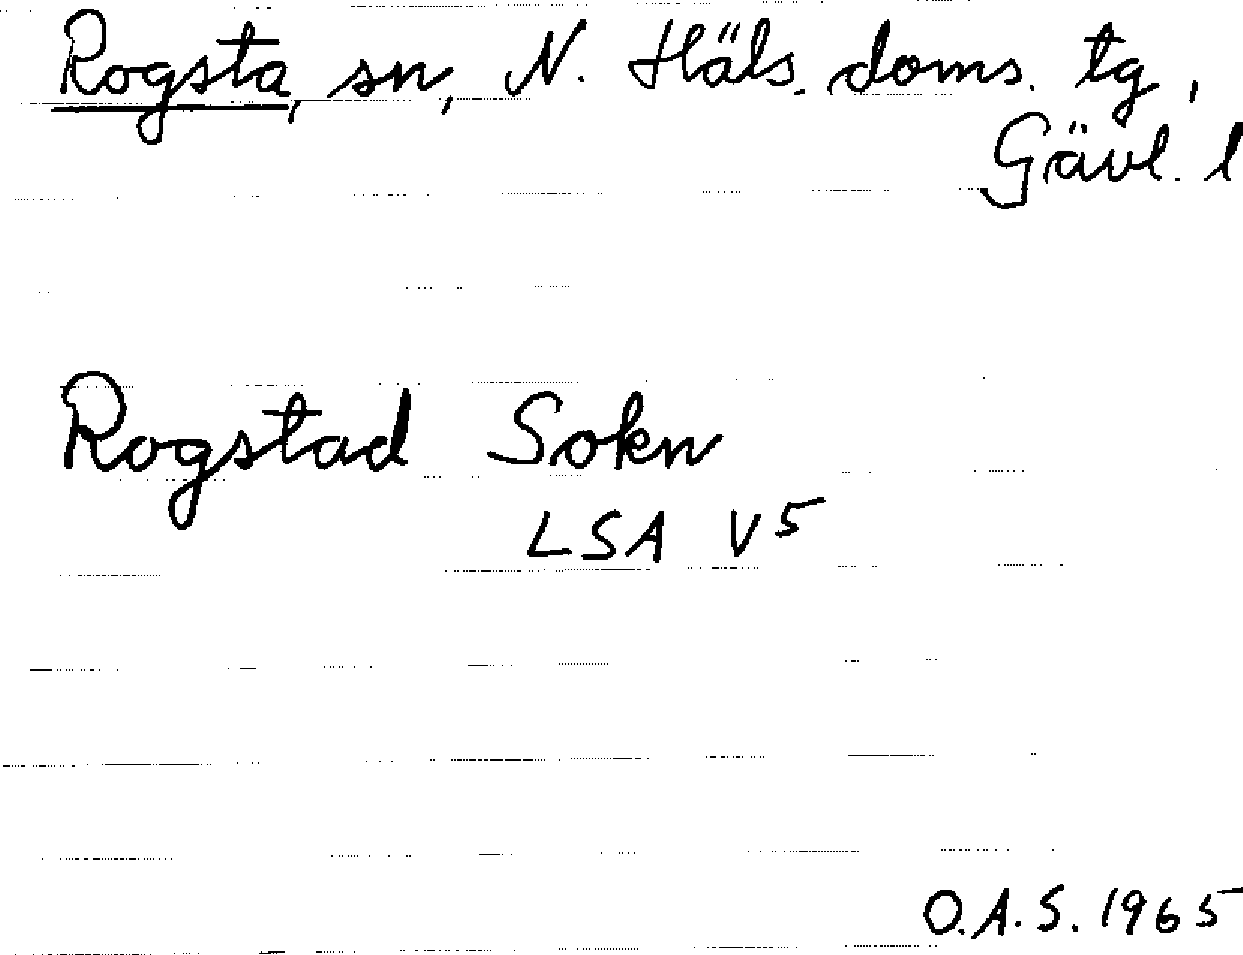 Rogsta, sn, N. Häls. doms. tg,
Gävl. l
Rogstad Sokn
LSA V5
O.A.S. 1965